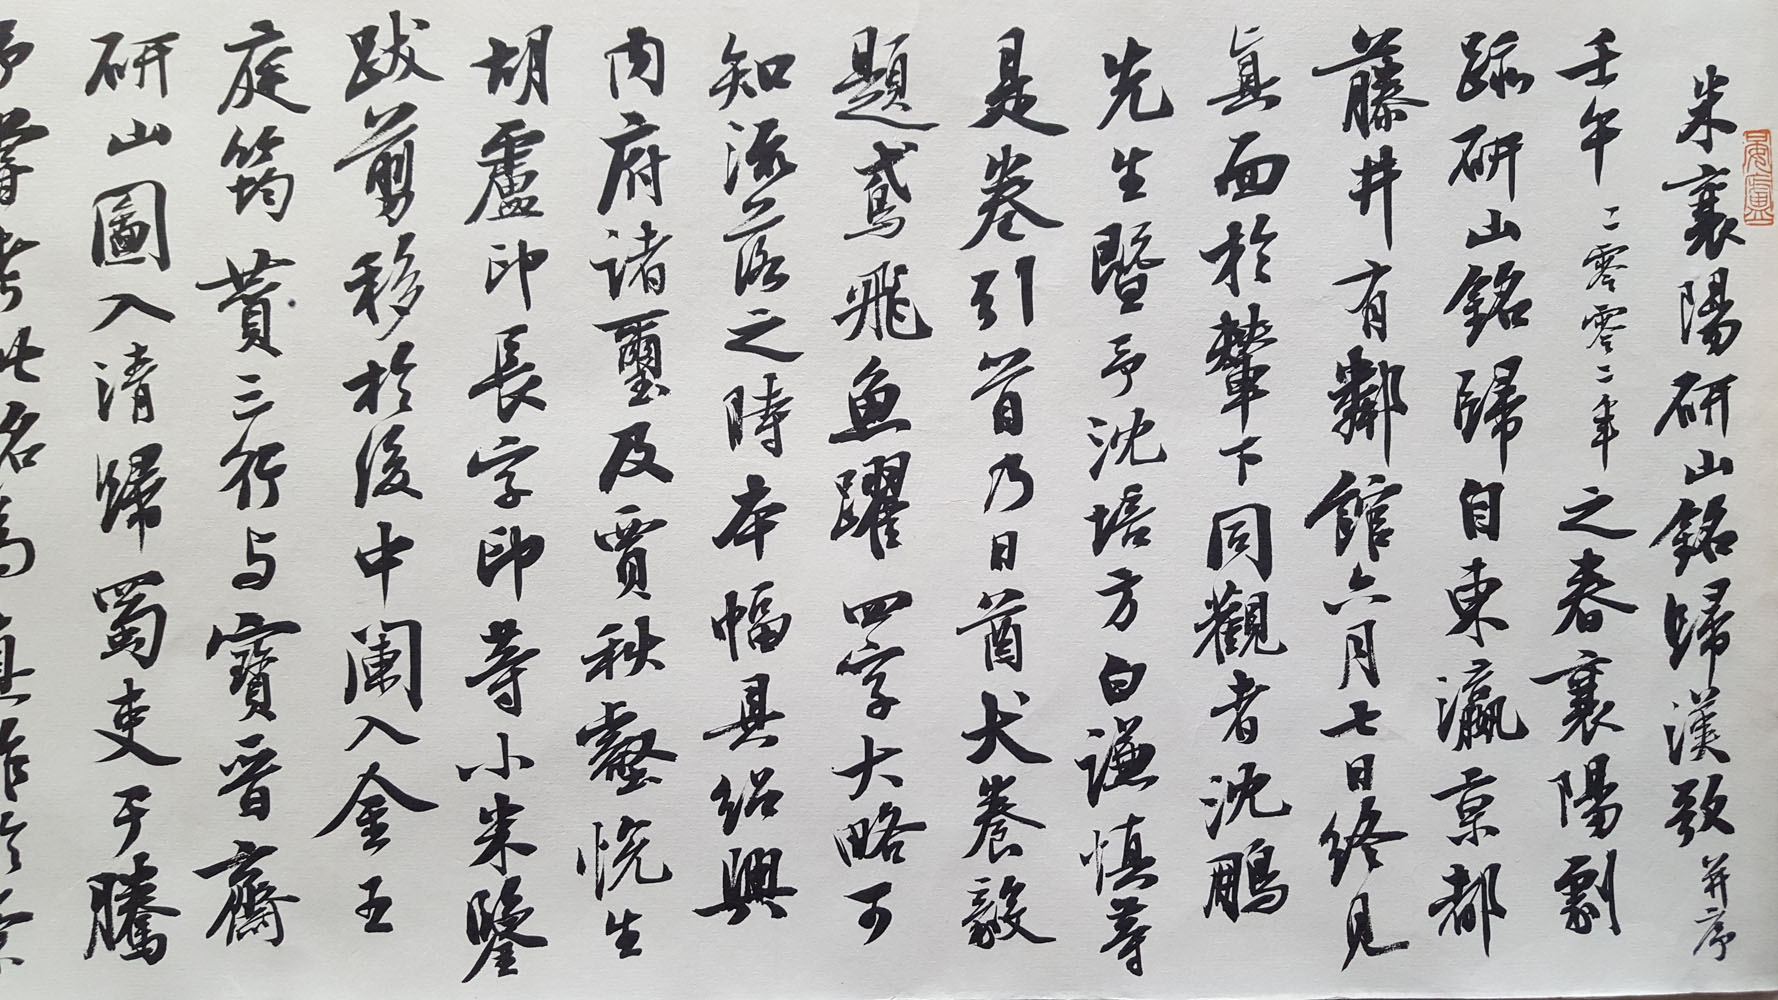 米襄陽研山銘歸漢歌并序
壬午二零零二年之春襄陽劇
跡研山銘歸自東瀛京都
藤井有鄰館六月七日終見
真面於輦下同觀者沈鵬
先生暨予沈培方白謙慎等
是卷引首乃日酋犬養毅
題鳶飛魚躍四字大略可
知流落之時本幅具紹興
內府諸璽及賈秋壑悅生
胡盧印長字印等小米鑒
跋剪移於後中闌入金王
庭筠贊三行与寶晉齋
研山圖入清歸蜀吏于騰